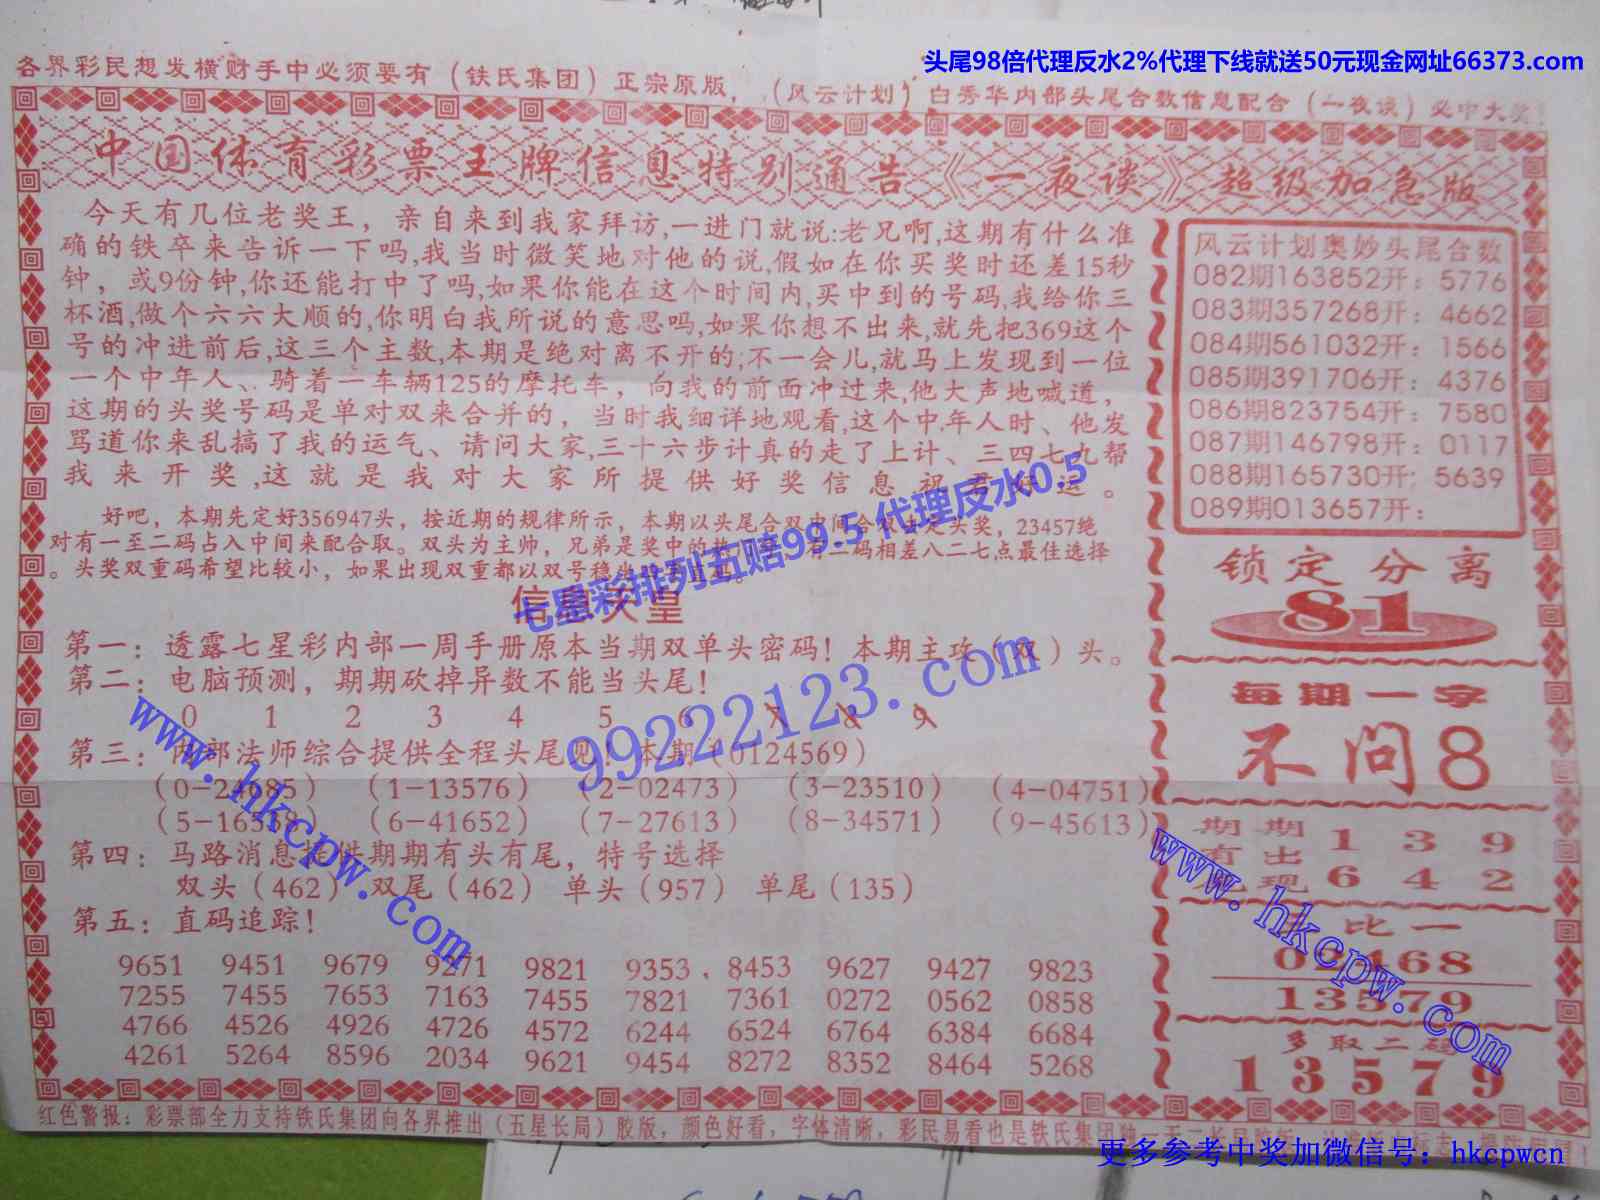 头尾98倍代理反水2%代理下线就送50元现金网址66373.com
各界彩民想发横财手中必须要有（铁氏集团）正宗原版，（风云计划）白秀华内部头尾合数信息配合（一夜谈）必中大奖！
中国体育彩票王牌信息特别通告《一夜谈》超级加急版
今天有几位老奖王，亲自来到我家拜访,一进门就说:老兄啊,这期有什么准
确的铁卒来告诉一下吗,我当时微笑地对他的说,假如在你买奖时还差15秒
钟，或9份钟,你还能打中了吗,如果你能在这个时间内,买中到的号码,我给你三
杯酒,做个六六大顺的,你明白我所说的意思吗,如果你想不出来,就先把369这个
号的冲进前后,这三个主数,本期是绝对离不开的;不一会儿,就马上发现到一位
一个中年人、骑着一车辆125的摩托车，向我的前面冲过来,他大声地喊道,
这期的头奖号码是单对双来合并的，当时我细详地观看,这个中年人时、他发
骂道你来乱搞了我的运气、请问大家,三十六步计真的走了上计、三四七九帮
我来开奖,这就是我对大家所提供好奖信息祝君好运。
好吧，本期先定好356947头，按近期的规律所示，本期以头尾合双中间合双去定头奖，23457绝
对有一至二码占入中间来配合取。双头为主帅，兄弟是奖中的 有二码相差八二七点最佳选择
。头奖双重码希望比较小，如果出现双重都以双号稳
七星彩排列五赔99.5 代理反水0.5
信息 皇
第一：透露七星彩内部一周手册原本当期双单头密码！本期主攻（双）头。
第二：电脑预测，期期砍掉异数不能当头尾！
0 1 2 3 4 5 6 7 8 9
第三：内部法师综合提供全程头尾见！本期（0124569）
（0-24685） （1-13576） （2-02473） （3-23510） （4-04751）
（5-16 8） （6-41652） （7-27613） （8-34571） （9-45613）
第四：马路消息提供期期有头有尾，特号选择
双头（462） 双尾（462） 单头（957） 单尾（135）
第五：直码追踪！
9651 9451 9679 9271 9821 9353 8453 9627 9427 9823
7255 7455 7653 7163 7455 7821 7361 0272 0562 0858
4766 4526 4926 4726 4572 6244 6524 6764 6384 6684
4261 5264 8596 2034 9621 9454 8272 8352 8464 5268
风云计划奥妙头尾合数
082期163852开：5776
083期357268开：4662
084期561032开：1566
085期391706开：4376
086期823754开：7580
087期146798开：0117
088期165730开：5639
089期013657开：
锁定分离
81
每期一字
不问8
期期 1 3 9
有出
现 6 4 2
比一
02468
13579
多取二码
13579
99222123.com
www.hkcpw.com
www.hkcpw.com
红色警报：彩票部全力支持铁氏集团向各界推出（五星长局）胶版，颜色好看，字体清晰，彩民易看也是铁氏集团
更多参考中奖加微信号：hkcpwcn